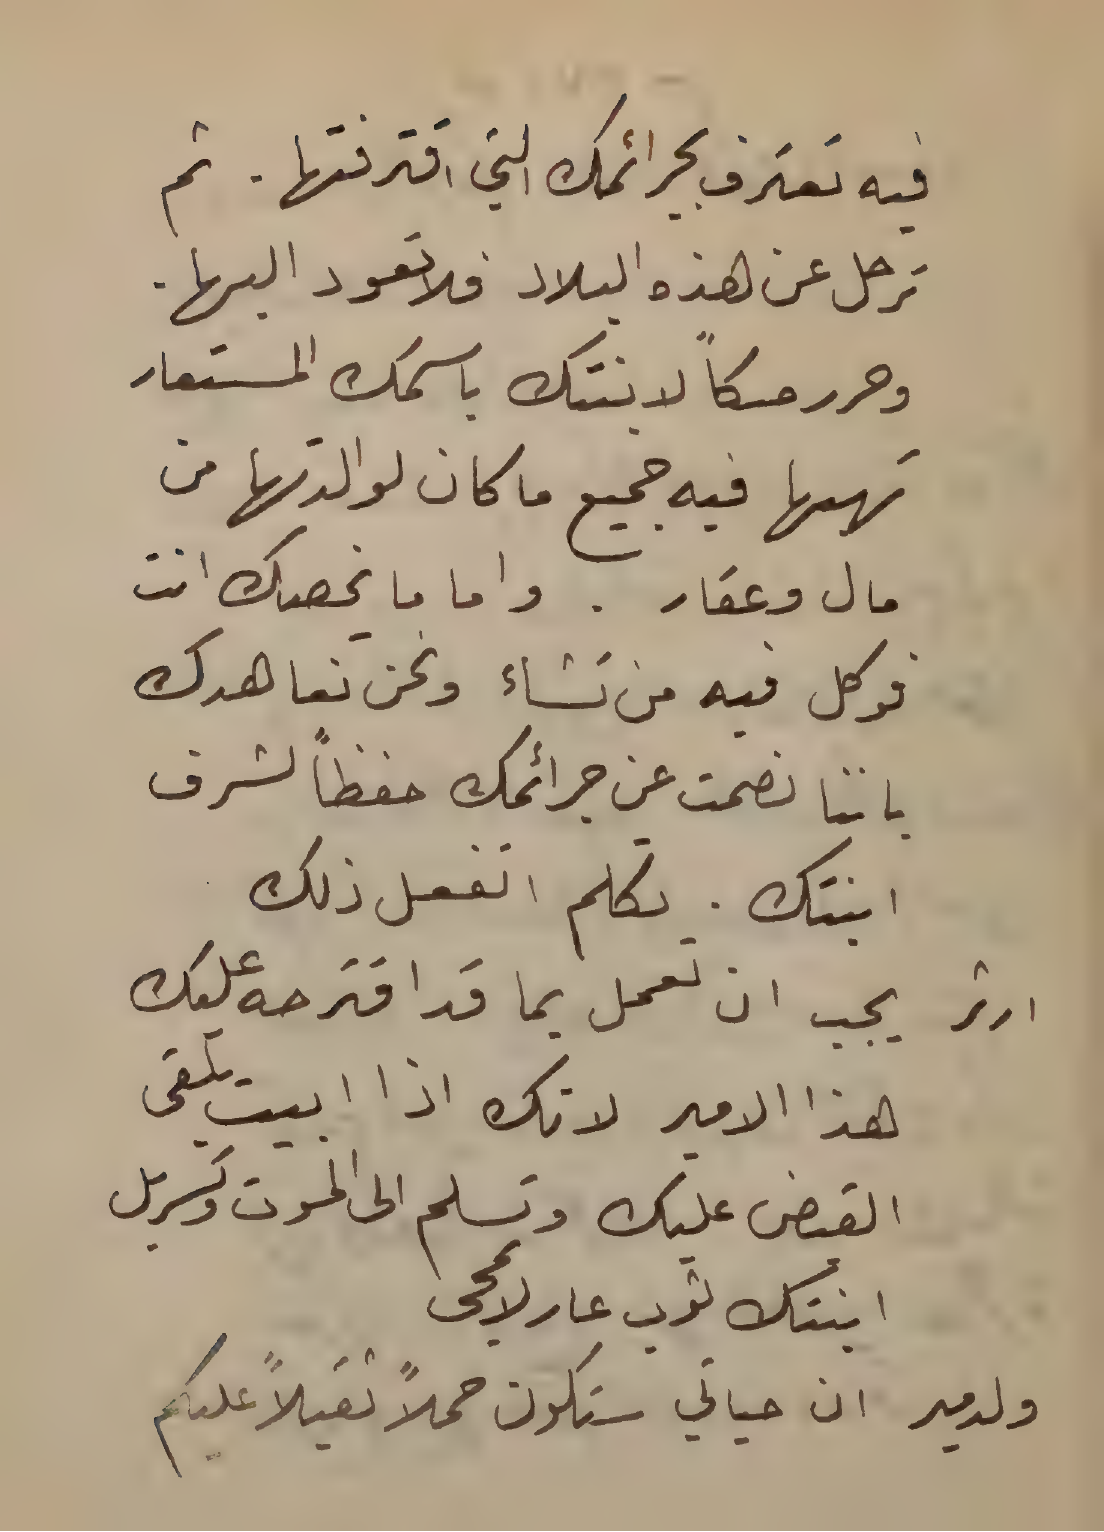 فيه تعترف بجرائمك التي اقترفتها . ثم
ترحل عن هذه البلاد فلا تعود اليها .
وحرر صكاً لابنتك باسمك المستعار
تهبها فيه جميع ما كان لوالدتها من
مال وعقار . واما ما يخصك انت
فوكل فيه من تشاء ونحن نعاهدك
باننا نصمت عن جرائمك حفظاً لشرف
ابنتك . تكلم اتفعل ذلك
ارثر يجب ان تعمل بما قد اقترحه عليك
هذا الامير لانك اذا ابيت يلقى
القبض عليك وتسلم الى الموت وتسربل
ابنتك ثوب عار لا يمحى
ولدمير ان حياتي ستكون حملاً ثقيلاً عليكم